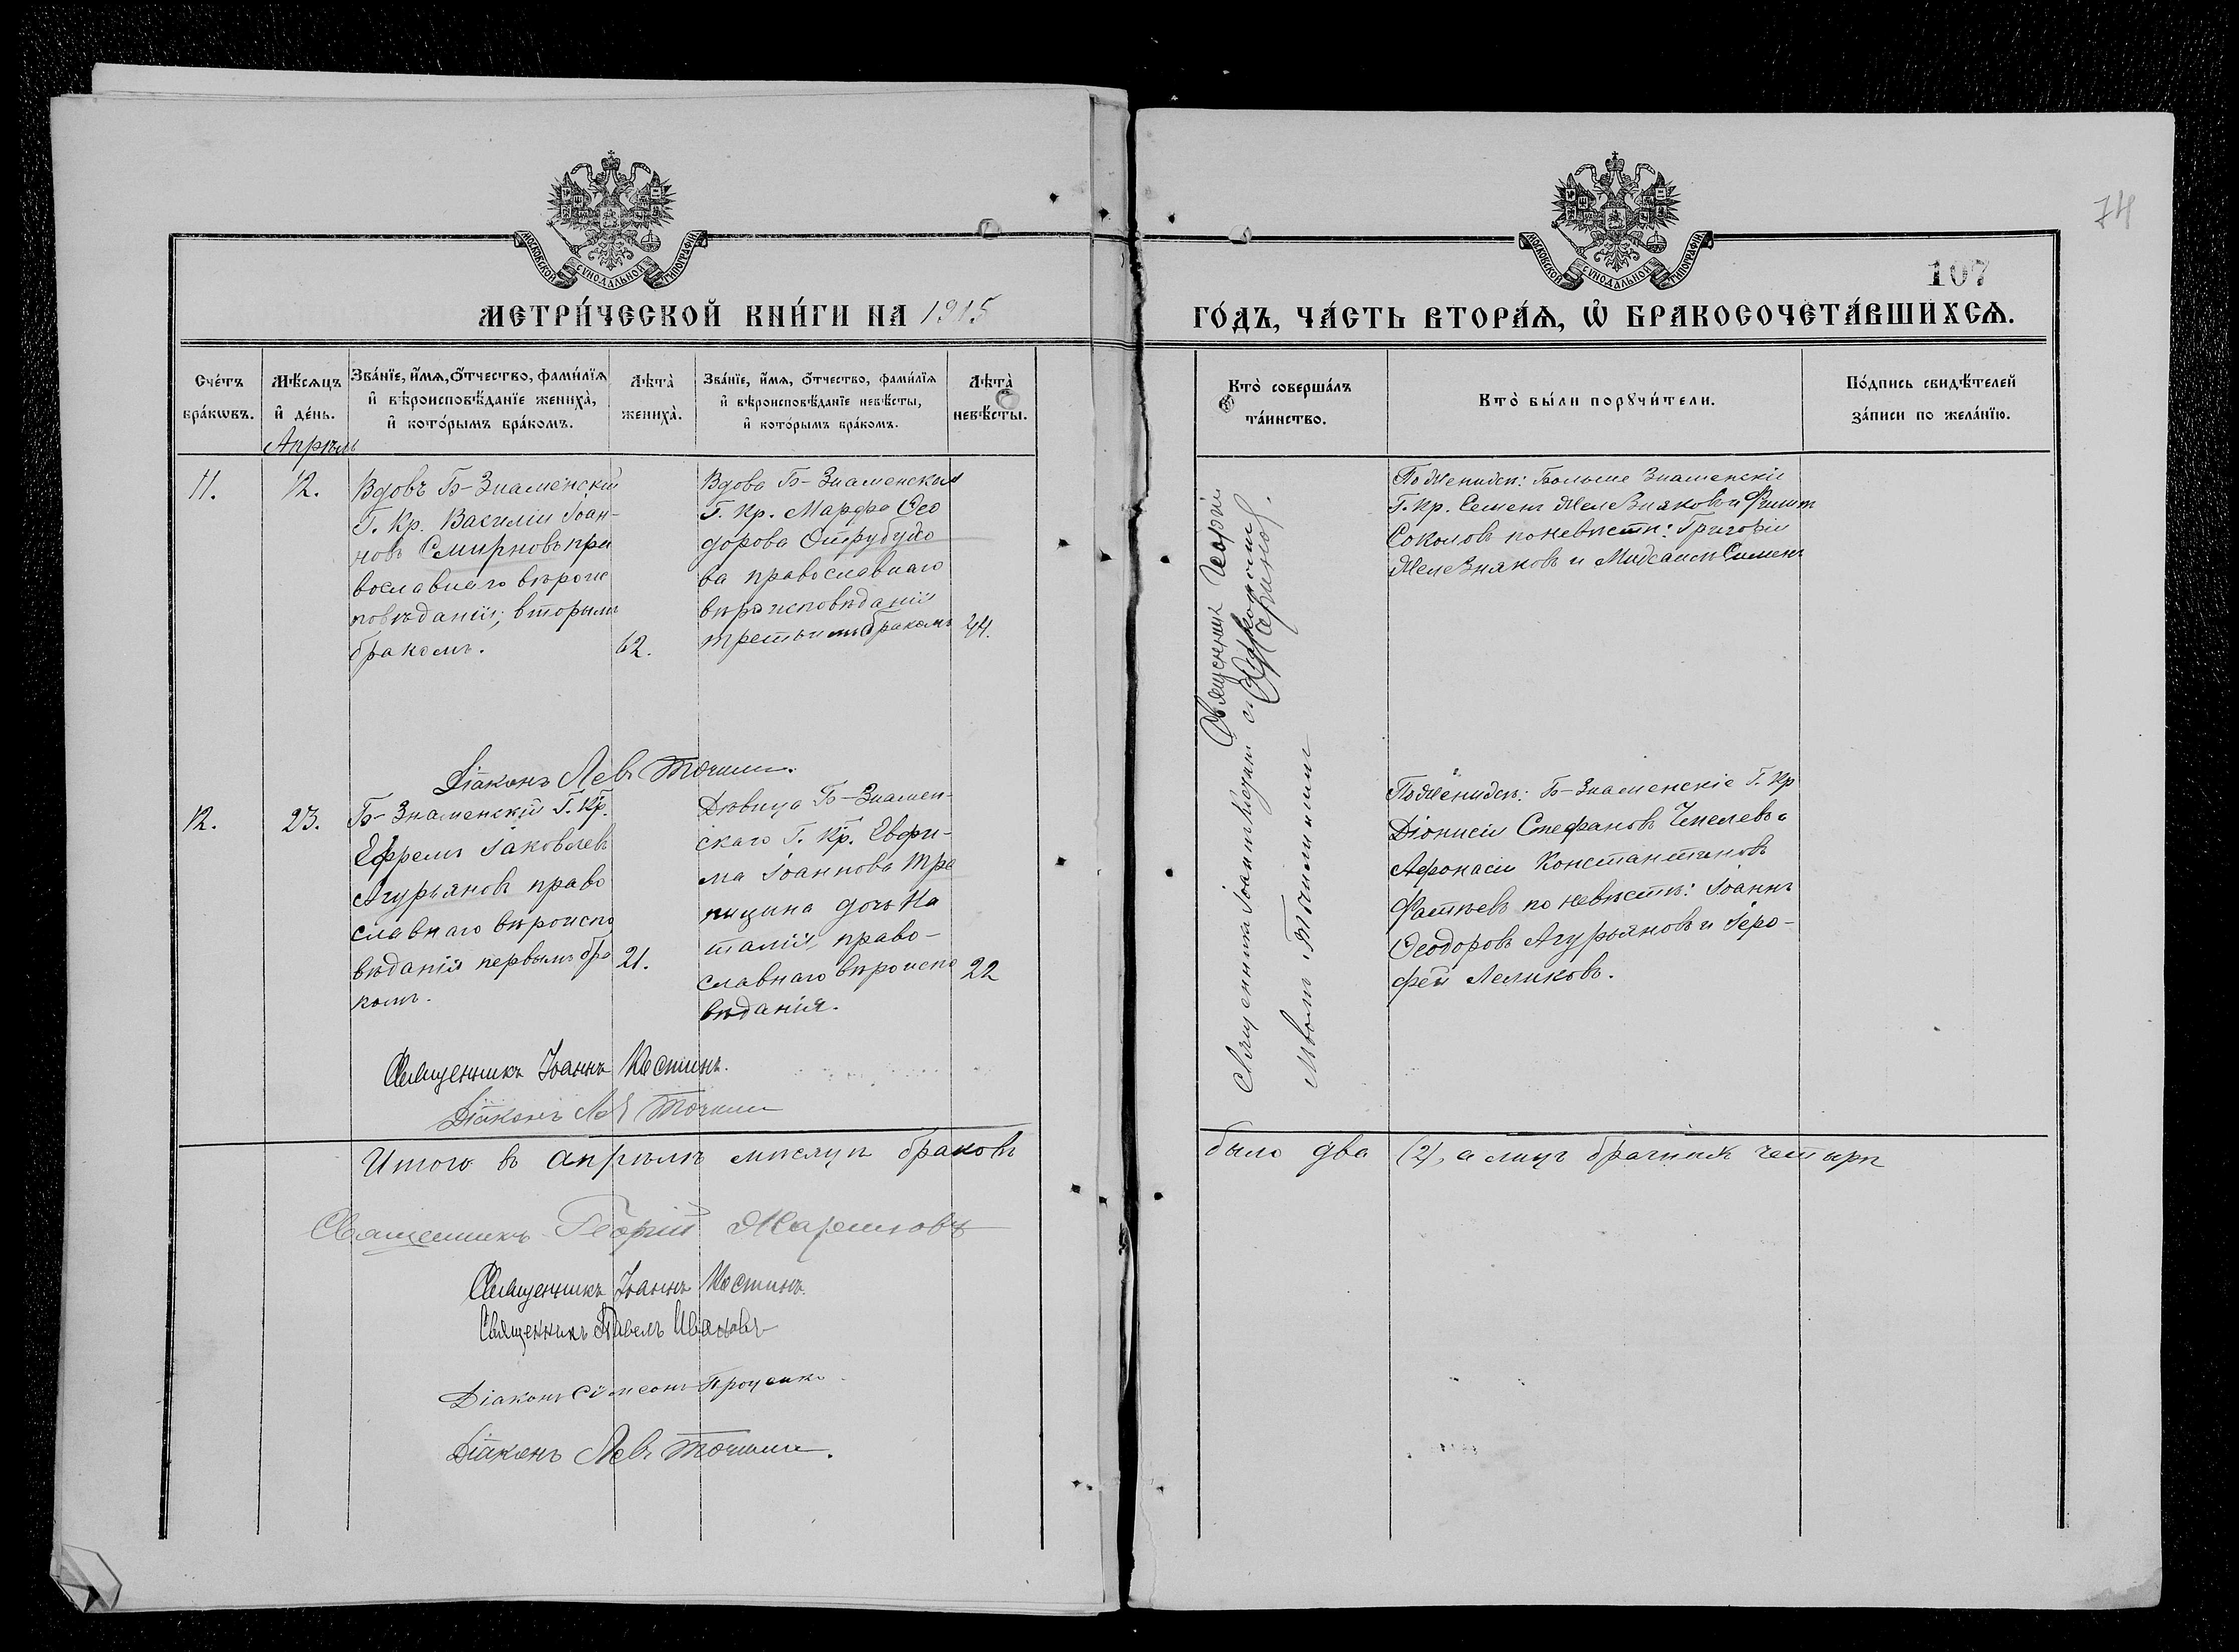 74
МОСКОВСКОЙ СѴНОДАЛЬНОЙ ТИПОГРАФІИ
МОСКОВСКОЙ СѴНОДАЛЬНОЙ ТИПОГРАФІИ
107
МЕТРИ́ЧЕСКОЙ КНИ́ГИ НА 1915
ГО́ДЪ, ЧА́СТЬ ВТОРА́Ѧ, Ѡ҆ БРАКОСОЧЕТА́ВШИХСѦ.
Сче́тъ
бра́кѡвъ.
Мѣ́сяцъ
и҆ де́нь.
Зва́нїе, и҆́мѧ, ѻ҆́тчество, фами́лїѧ
и҆ вѣроисповѣ́данїе жениха̀,
и҆ кото́рымъ бра́комъ.
Лѣ́та̀
жениха̀.
Зва́нїе, и҆́мѧ, ѻ҆́тчество, фами́лїѧ
и҆ вѣроисповѣ́данїе невѣ́сты,
и҆ кото́рымъ бра́комъ.
Лѣ́та̀
невѣ́сты.
Кто̀ соверша́лъ
та́инство.
Кто̀ бы́ли порꙋчи́тели.
По́дпись свидѣ́телей
за́писи по жела́нїю.
Апрѣль
11.
12.
Вдовъ Б-Знаменскій
Г. Кр. Василій Іоан-
новъ Смирновъ пра
вославнаго вѣроис
повѣданія, вторымъ
бракомъ.
62.
Вдова Б-Знаменская
Г. Кр. Марфа Ѳео
дорова Отрубуно
ва православнаго
вѣроисповѣданія
третьимъ бракомъ
44.
Священник Георгій
Священникъ Іоаннъ
Львомъ Точилинымъ
По женихѣ: Больше Знаменскіе
Г. Кр. Семенъ Железняковъ и
Соколовъ по невѣстѣ: Григорій
Железняковъ и
Діаконъ Левъ Точилин.
12.
23.
Б-Знаменскій Г. Кр.
Ефремъ Іаковлевъ
Агурьяновъ право
славнаго вѣроиспо
вѣданія первымъ бра
комъ.
21.
Дѣвица Б-Знамен-
скаго Г. Кр. Евфи-
ма Іоаннова Тра
пицина дочь На
талія, право-
славнаго вѣроиспо
вѣданія.
22
По женихѣ: Б-Знаменскіе Г. Кр
Діонисій Стефановъ и
Афонасій Константиновъ
Фатѣевъ по невѣстѣ: Іоаннъ
Ѳеодоровъ Агурьяновъ и Іеро-
фей Леликовъ.
Священникъ Іоаннъ Костинъ.
Діаконъ Левъ Точилин
Итого въ апрѣлѣ мѣсяцѣ браковъ
было два (2), а лицъ брачныхъ четыре
Священникъ Георгій
Священникъ Іоаннъ Костинъ.
Священникъ Павелъ Ивановъ
Діаконъ Сѵмеонъ Проценко
Діаконъ Левъ Точилин.